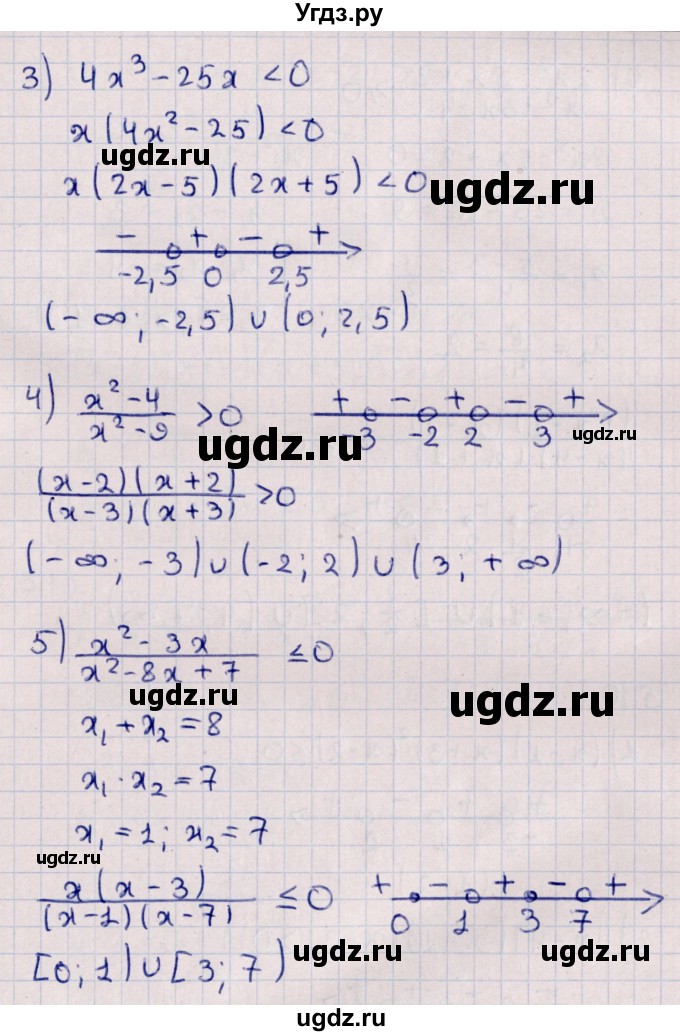 Угдз.ру
3) 4x³ - 25x < 0
x(4x² - 25) < 0
ugdz.ru
x(2x - 5)(2x + 5) < 0
ugdz.ru
- + - +
-2,5 0 2,5
(-∞; -2,5) ∪ (0; 2,5)
4) (x² - 4)/(x² - 9) > 0
+ - + - +
-3 -2 2 3
ugdz.ru
ugdz.ru
((x - 2)(x + 2))/((x - 3)(x + 3)) > 0
(-∞; -3) ∪ (-2; 2) ∪ (3; +∞)
5) (x² - 3x)/(x² - 8x + 7) ≤ 0
ugdz.ru
ugdz.ru
x₁ + x₂ = 8
x₁ · x₂ = 7
x₁ = 1; x₂ = 7
ugdz.ru
(x(x - 3))/((x - 1)(x - 7)) ≤ 0
+ - + - +
0 1 3 7
[0; 1) ∪ [3; 7)
ugdz.ru
ugdz.ru